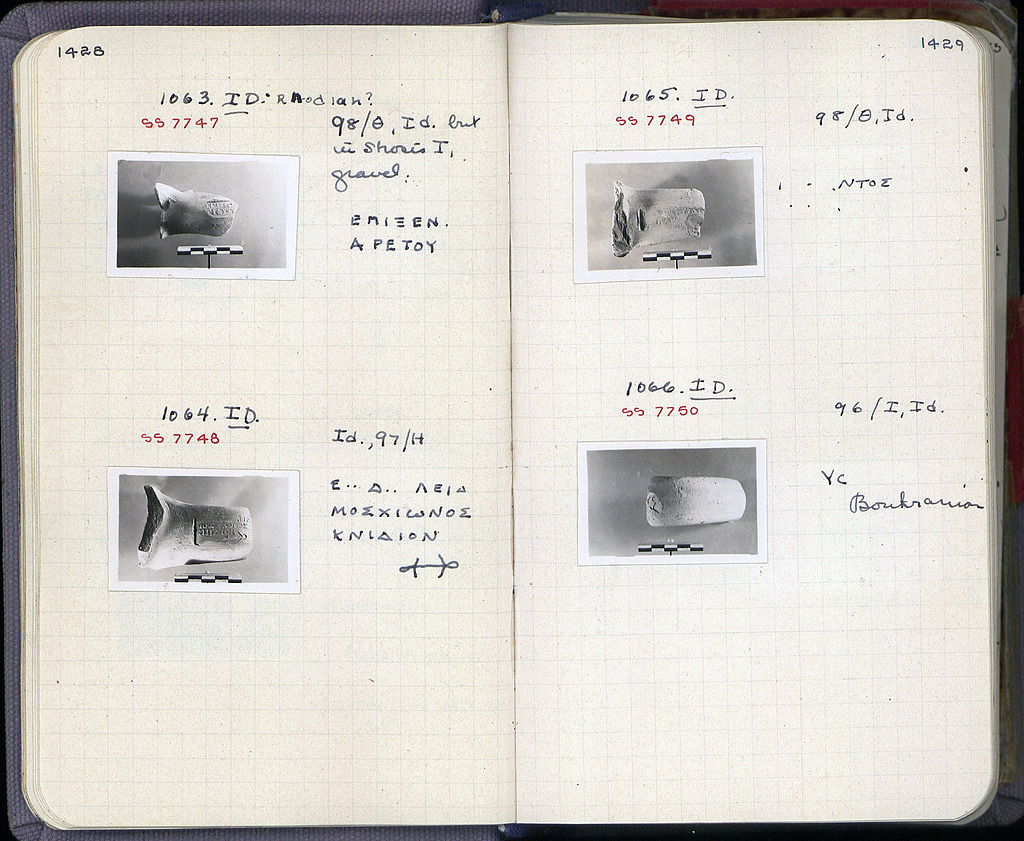 1428
1063. ID. Rhodian?
SS 7747
98/Θ, Id. but
in Stosis I,
gravel.
ΕΠΙΞΕΝ.
ΑΡΕΤΟΥ
1064. ID.
SS 7748
Id., 97/H
Ε.. Δ.. ΛΕΙΔ
ΜΟΣΧΙωΝΟΣ
ΚΝΙΔΙΟΝ
1429
1065. ID.
SS 7749
98/Θ, Id.
. . . ΝΤΟΣ
1066. ID.
SS 7750
96/I, Id.
Boukranion